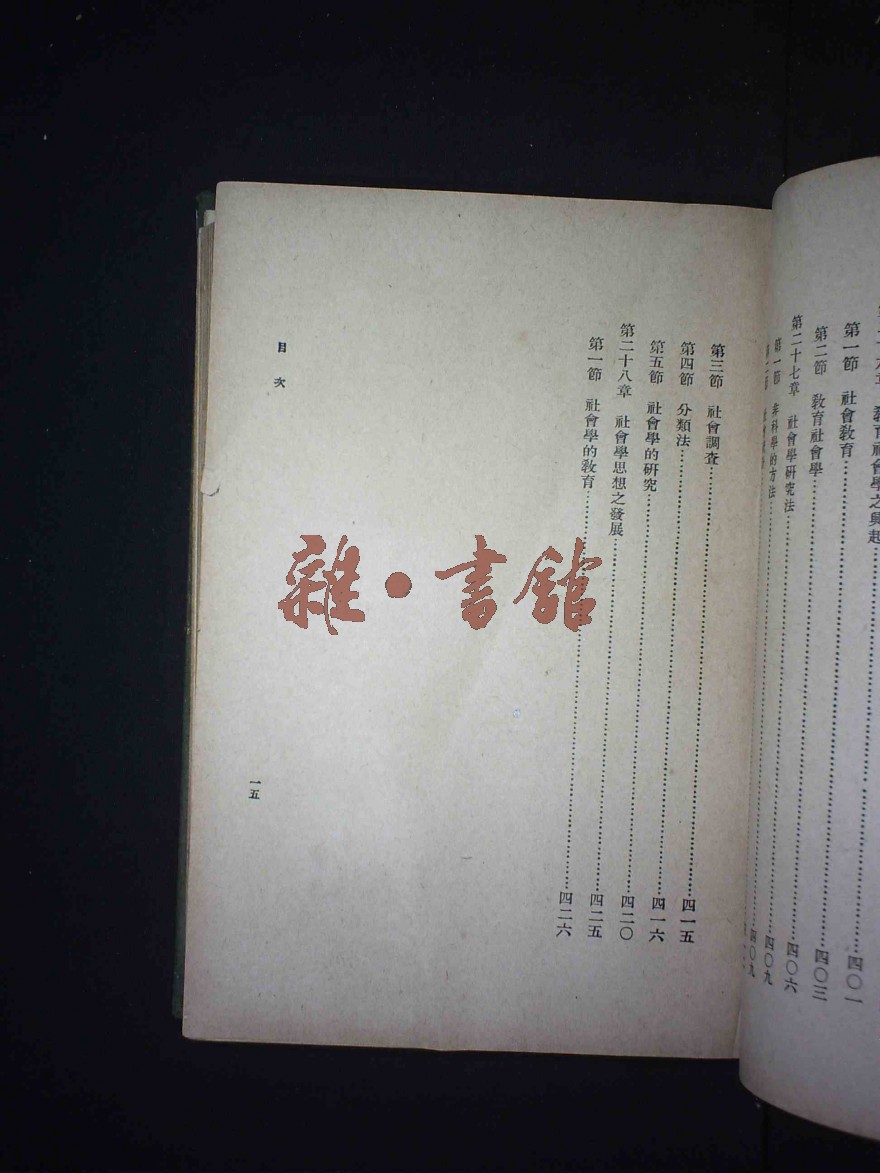 教育社會學之興起……四〇一
第一節 社會教育……四〇三
第二節 教育社會學……四〇六
第二十七章 社會學研究法……四〇九
第一節 非科學的方法……四〇九
第三節 社會調查……四一五
第四節 分類法……四一六
第五節 社會學的研究……四二〇
第二十八章 社會學思想之發展……四二五
第一節 社會學的教育……四二六
目次
一五
雜·書館